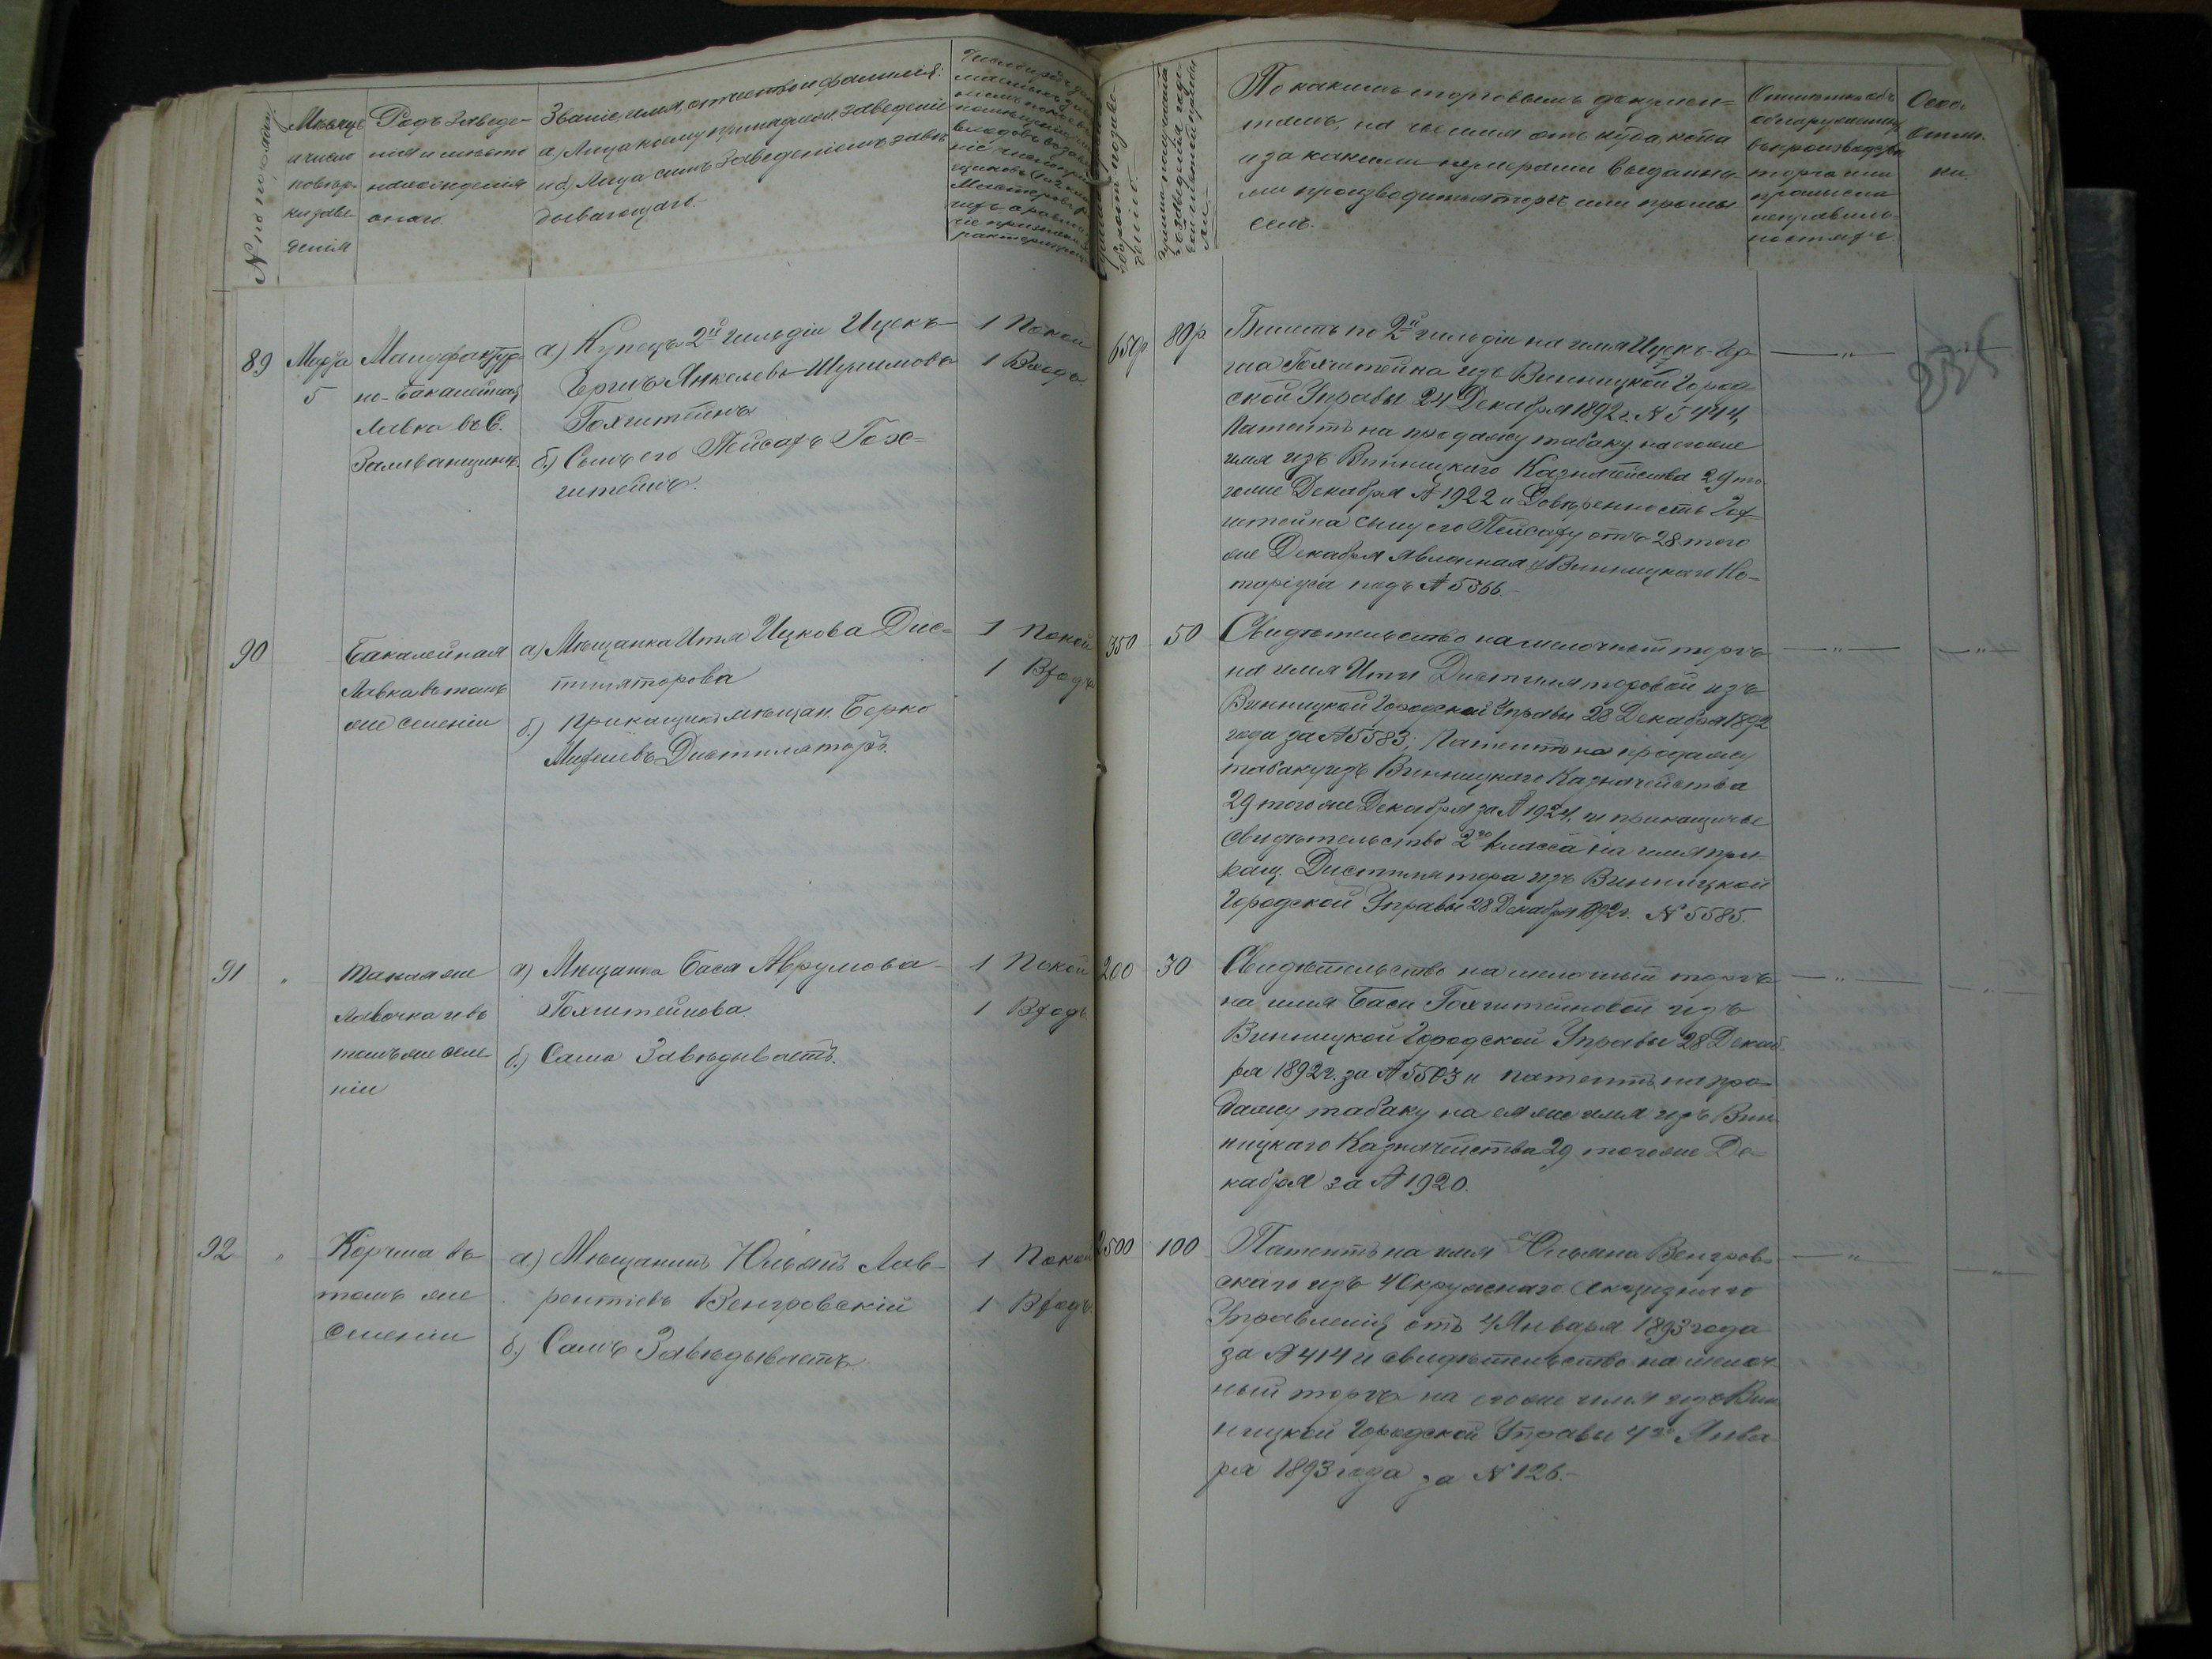 № по порядку.
Мѣсяцъ
и число
повѣр-
ки заве-
денія
Родъ Заведе-
нія и мѣсто
нахожденія
онаго.
Званіе, имя, отчество и фамилія:
а) Лица коему принадлежитъ заведеніе
и б) Лица симъ Заведеніемъ завѣ-
дывающаго.-
По какимъ торговымъ докумен=
тамъ, на чье имя отъ куда, когда
и за какими нумерами выданны-
ми производится торгъ или промы
селъ.
Отмѣтка объ
обнаруженныхъ
въ производствѣ
торга или
промысла
неправиль-
ностяхъ.
Особ.
Отмѣт.
ки
89
Марта
5
Мануфактур-
но-Бакалейная
Лавка въ С.
Заливанщинѣ.
а) Купецъ 2й гильдіи Ицекъ-
Гершъ Янкелевъ-Шулимовъ
Гохштейнъ
б.) Сынъ его Пейсахъ Гох=
штейнъ.
1 Покой
1 Входъ.
650р
80р
Билетъ по 2й гильдіи на имя Ицекъ-Гер
ша Гохштейна изъ Винницкой Город-
ской Управы 24 Декабря 1892 г. № 5444,
Патентъ на продажу табаку на его же
имя изъ Винницкаго Казначейства 29 то-
го же Декабря № 1922 и Довѣренность Гох
штейна сыну его Пейсаху отъ 28 того
же Декабря явленная у Винницкаго Но-
таріуса подъ № 5366.-
235
90
Бакалейная
Лавка въ томъ
же селеніи
а) Мѣщанка Итя Ицкова Дис=
тиляторова
б.) Прикащикъ мѣщан. Берко
Дистиляторъ.
1 Покой
1 Входъ
350
50
Свидѣтельство на мелочный торгъ
на имя Ити Дистиляторовой изъ
Винницкой Городской Управы 28 Декабря 1892
года за № 5583; Патентъ на продажу
табаку изъ Винницкаго Казначейства
29 того же Декабря за № 1924, и прикащичье
свидѣтельство 2го класса на имя при-
кащ. Дистилятора изъ Винницкой
Городской Управы 28 Декабря 1892 г. № 5585.
91
"
Такая же
Лавочка и въ
томъ же селе-
ніи
а) Мѣщанка Бася Аврумова-
Гохштейнова.
б.) Сама Завѣдываетъ.
1 Покой
1 Входъ.
200
30
Свидѣтельство на мелочный торгъ
на имя Баси Гохштейновой изъ
Винницкой Городской Управы 28 Декаб-
ря 1892 г. за № 5503 и патентъ на про-
дажу табаку на ея же имя изъ Вин
ницкаго Казначейства 29 того же Де=
кабря за № 1920.
92
"
Корчма въ
томъ же
Селеніи
а.) Мѣщанинъ Юльянъ Лав-
рентіевъ Венгровскій
б.) Самъ Завѣдываетъ.
1 Покой
1 Входъ.
2500
100
Патентъ на имя Юльяна Венгров-
скаго изъ 4 Окружнаго Акцизнаго
Управленія отъ 4 Января 1893 года
за № 414 и свидѣтельство на мелоч-
ный торгъ на его же имя изъ Вин
ницкой Городской Управы 4го Янва-
ря 1893 года за № 126.-